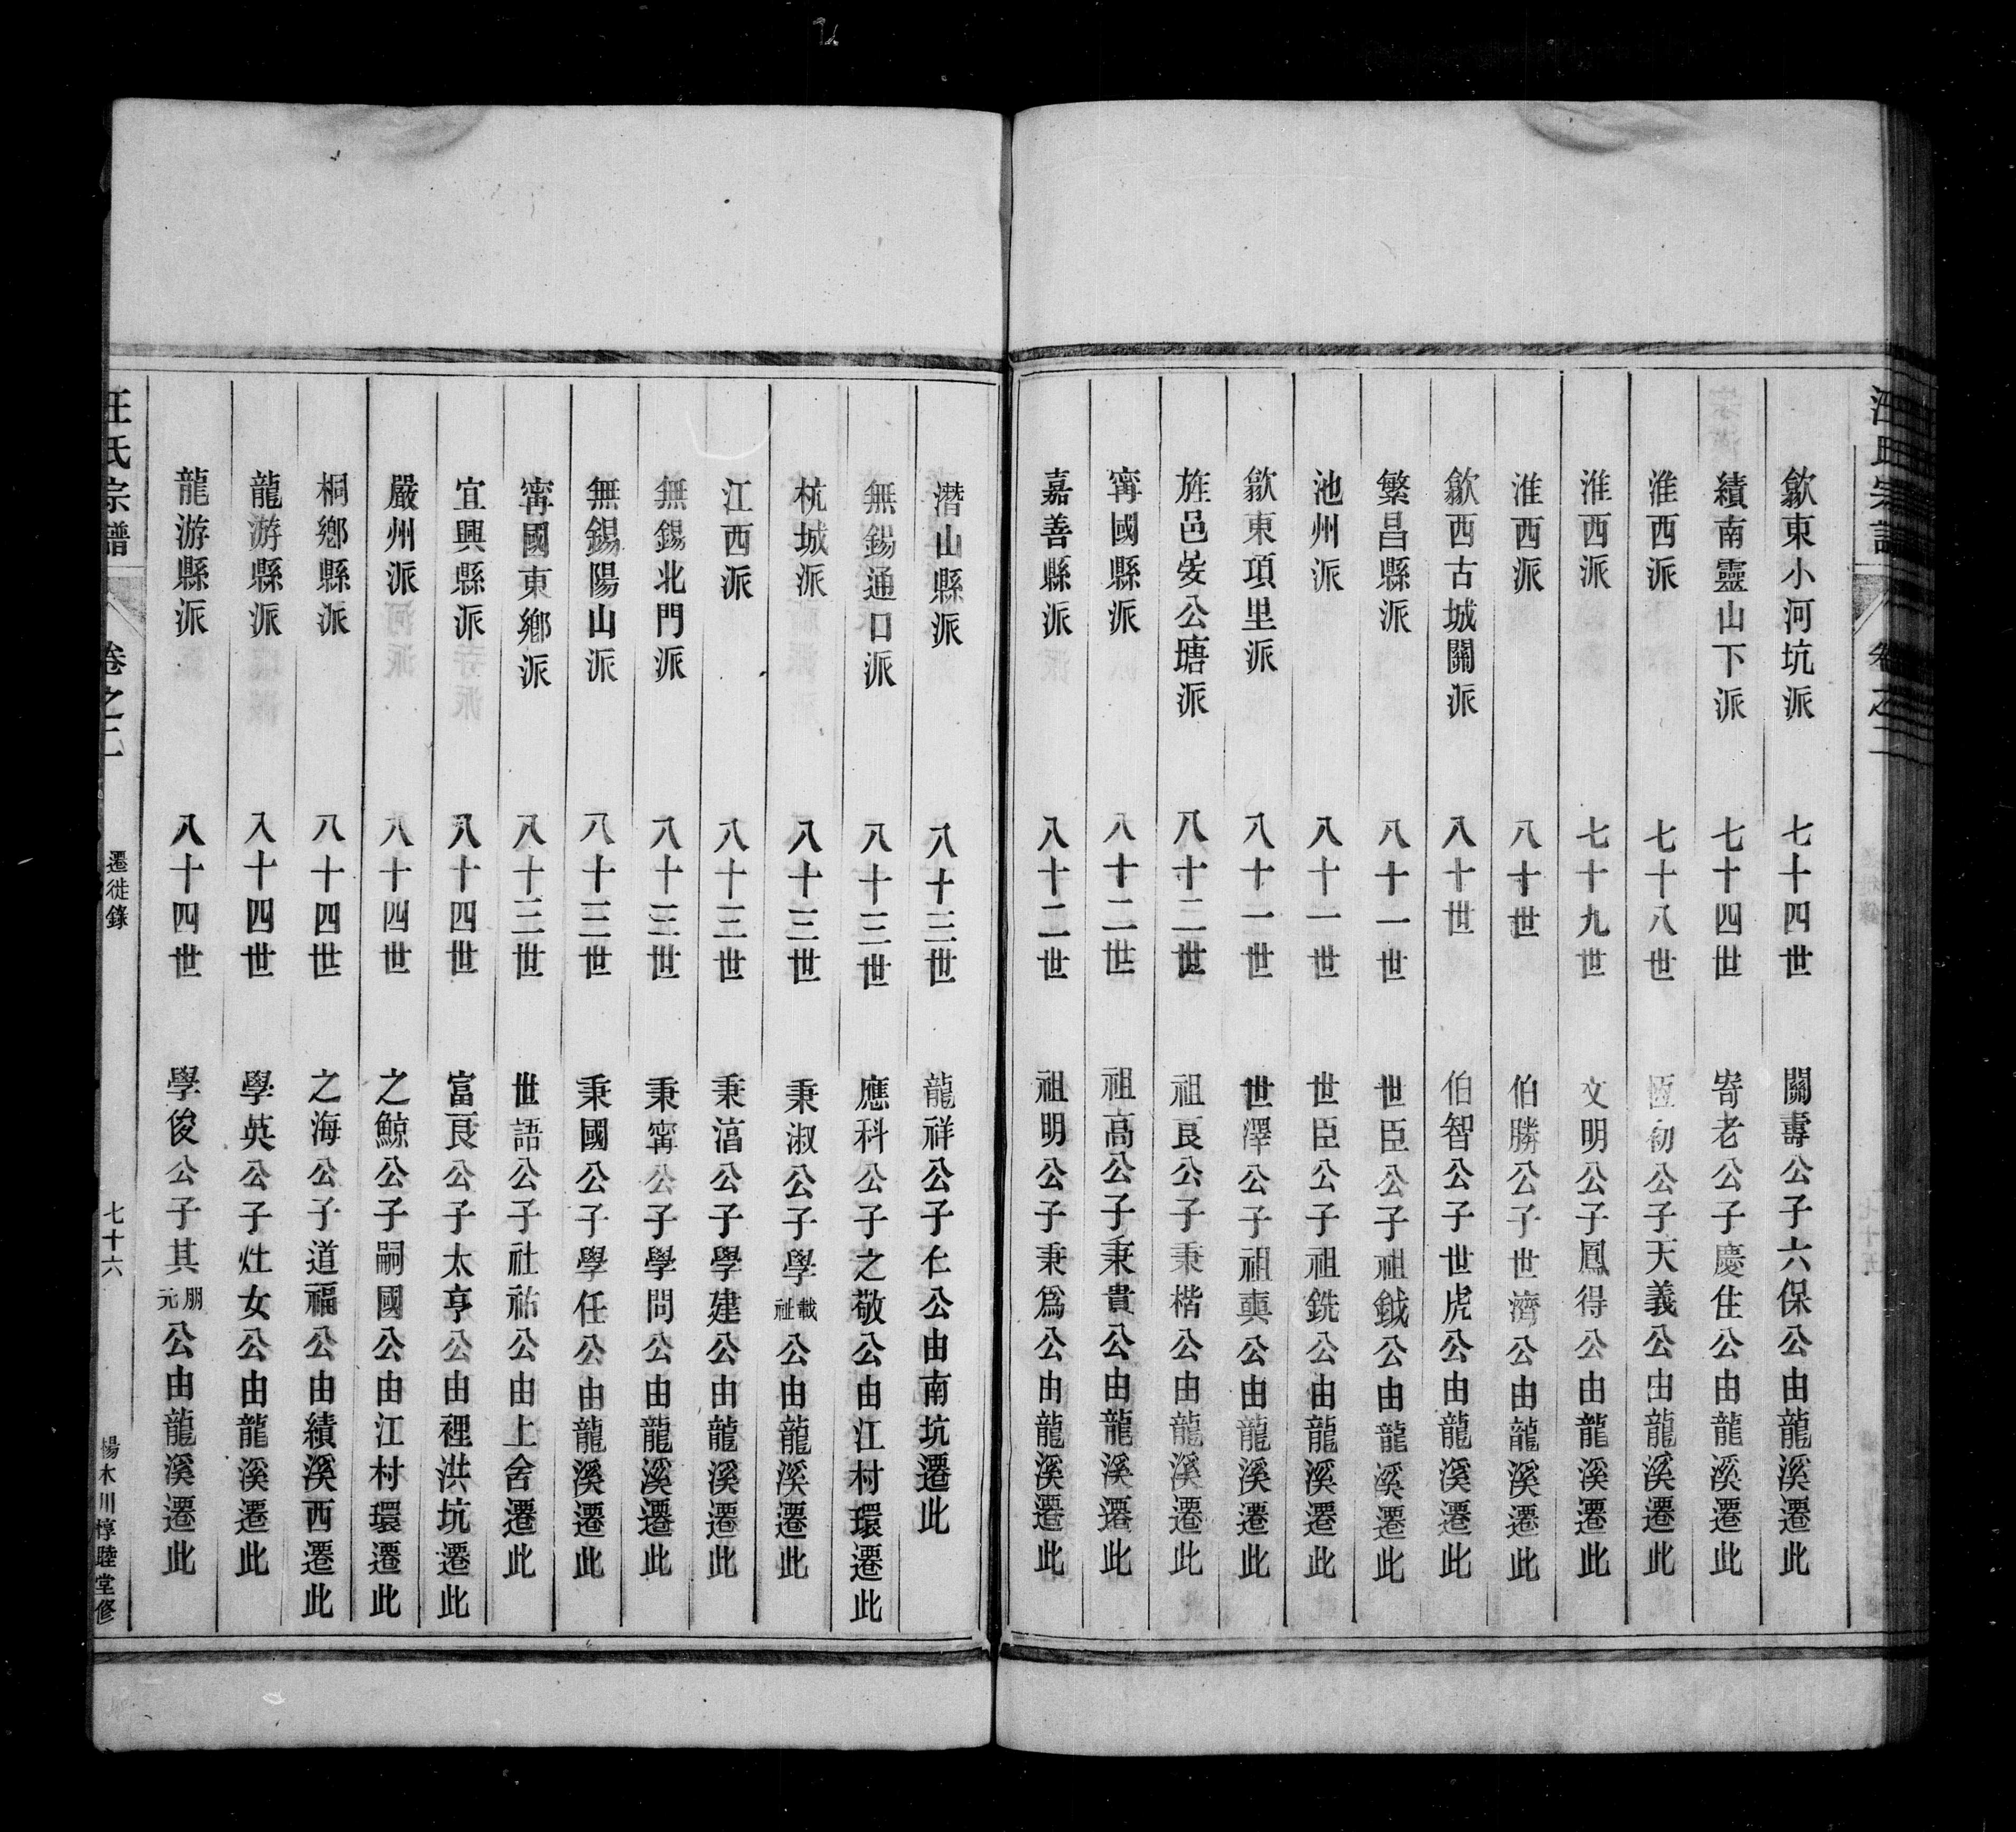 汪氏宗譜 卷之二
歙東小河坑派 七十四世 關壽公子六保公由龍溪遷此
績南靈山下派 七十四世 寄老公子慶住公由龍溪遷此
淮西派 七十八世 恆初公子天義公由龍溪遷此
淮西派 七十九世 文明公子鳳得公由龍溪遷此
淮西派 八十世 伯勝公子世濟公由龍溪遷此
歙西古城關派 八十世 伯智公子世虎公由龍溪遷此
繁昌縣派 八十一世 世臣公子祖鉞公由龍溪遷此
池州派 八十一世 世臣公子祖銑公由龍溪遷此
歙東項里派 八十一世 世澤公子祖奭公由龍溪遷此
旌邑晏公塘派 八十二世 祖良公子秉楷公由龍溪遷此
甯國縣派 八十二世 祖高公子秉貴公由龍溪遷此
嘉善縣派 八十二世 祖明公子秉爲公由龍溪遷此
潛山縣派 八十三世 龍祥公子仁公由南坑遷此
無錫通口派 八十三世 應科公子之敬公由江村環遷此
杭城派 八十三世 秉淑公子學載祉公由龍溪遷此
江西派 八十三世 秉湻公子學建公由龍溪遷此
無錫北門派 八十三世 秉甯公子學問公由龍溪遷此
無錫陽山派 八十三世 秉國公子學任公由龍溪遷此
甯國東鄉派 八十三世 世語公子社祐公由上舍遷此
宜興縣派 八十四世 富良公子太亨公由裡洪坑遷此
嚴州派 八十四世 之鯨公子嗣國公由江村環遷此
桐鄉縣派 八十四世 之海公子道福公由績溪西遷此
龍游縣派 八十四世 學英公子灶女公由龍溪遷此
龍游縣派 八十四世 學俊公子其朋元公由龍溪遷此
汪氏宗譜 卷之二 遷徙錄 七十六 楊木川惇睦堂修